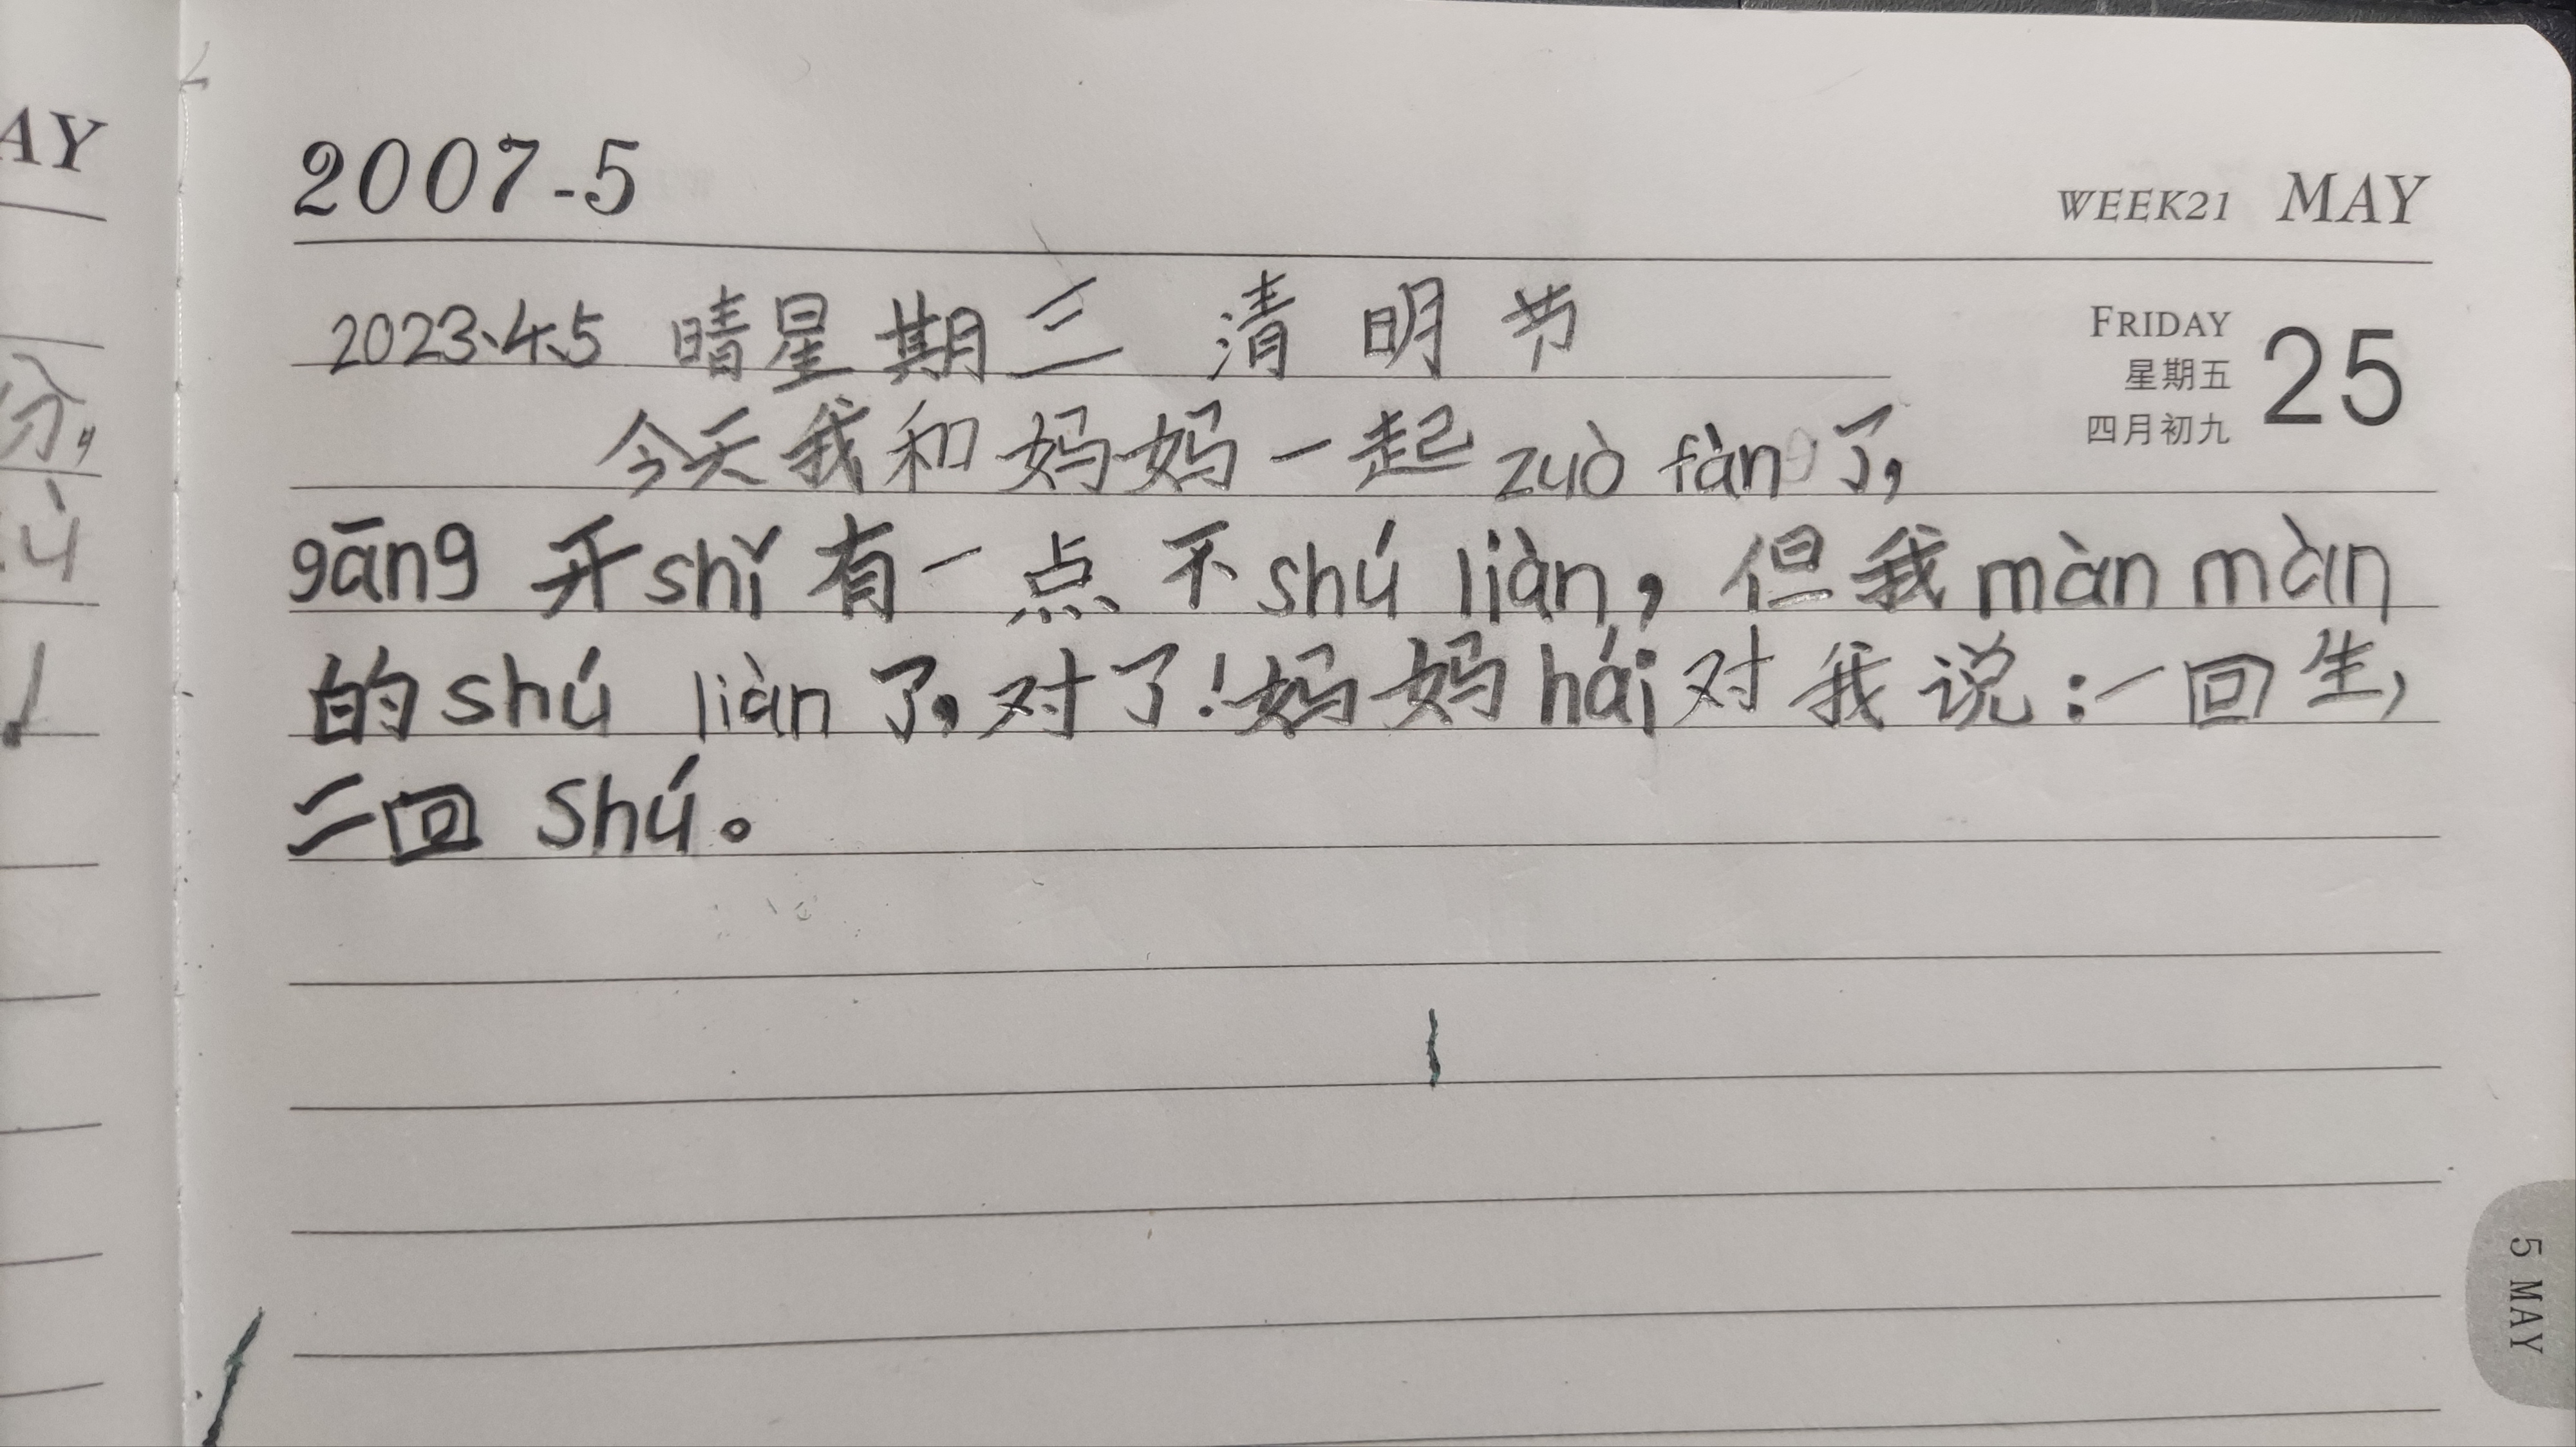 AY
份,
ù
2007-5
WEEK21 MAY
FRIDAY
星期五
四月初九
25
2023、4、5 晴 星期三 清明节
今天我和妈妈一起zuò fàn了,
gāng 开shǐ有一点不shú liàn,但我màn màn
的shú liàn了,对了!妈妈hái对我说:一回生,
二回 shú。
5 MAY